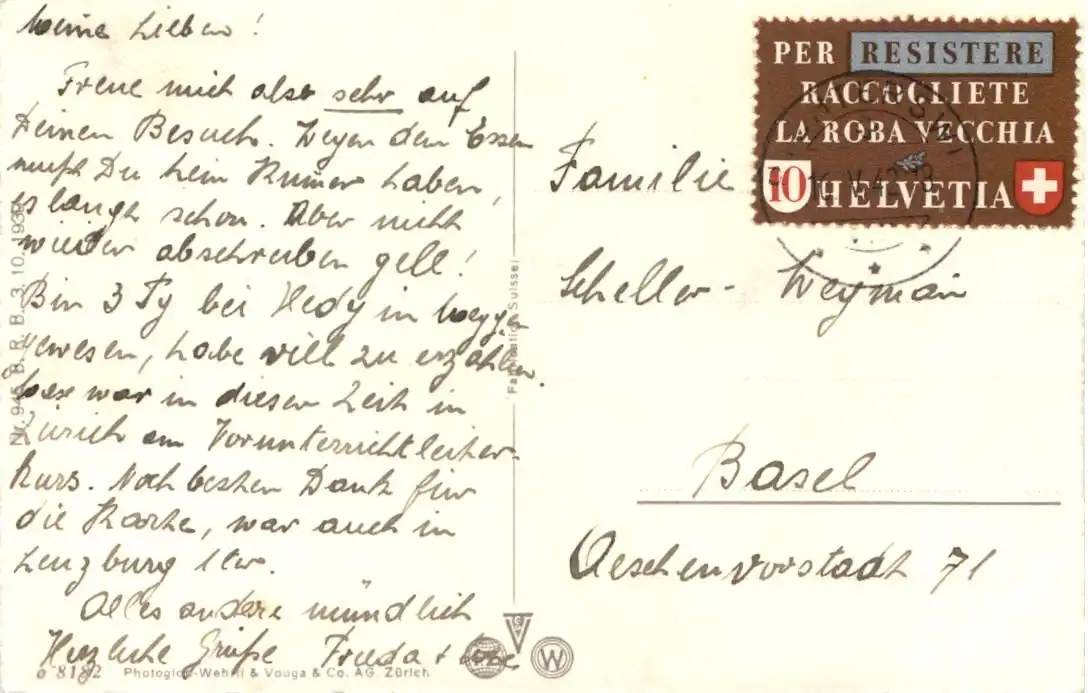 Meine Lieben!
Freue mich also sehr auf
Deinen Besuch. Wegen dem Essen
musst Du kein Kumer haben,
es langt schon. Aber nicht
wieder abschreiben gell!
Bin 3 Tg bei Hedy in Weggen
gewesen, habe vill zu erzählen.
war in dieser Zeit in
Zürich am Vorunterrichtleiter-
kurs. Noch besten Dank für
die Karte, war auch in
Lenzburg
Alles andere mündlich
Herzliche Grüße Frieda +
6 8182 Photoglob-Wehrli & Vouga & Co. AG. Zürich
Nr. 945 B. R. B. 3. 10. 1939
Fabrication Suisse
PER RESISTERE
RACCOGLIETE
LA ROBA VECCHIA
10 HELVETIA
Familie
Scheller - Weyman
Basel
Aeschenvorstadt 71
W